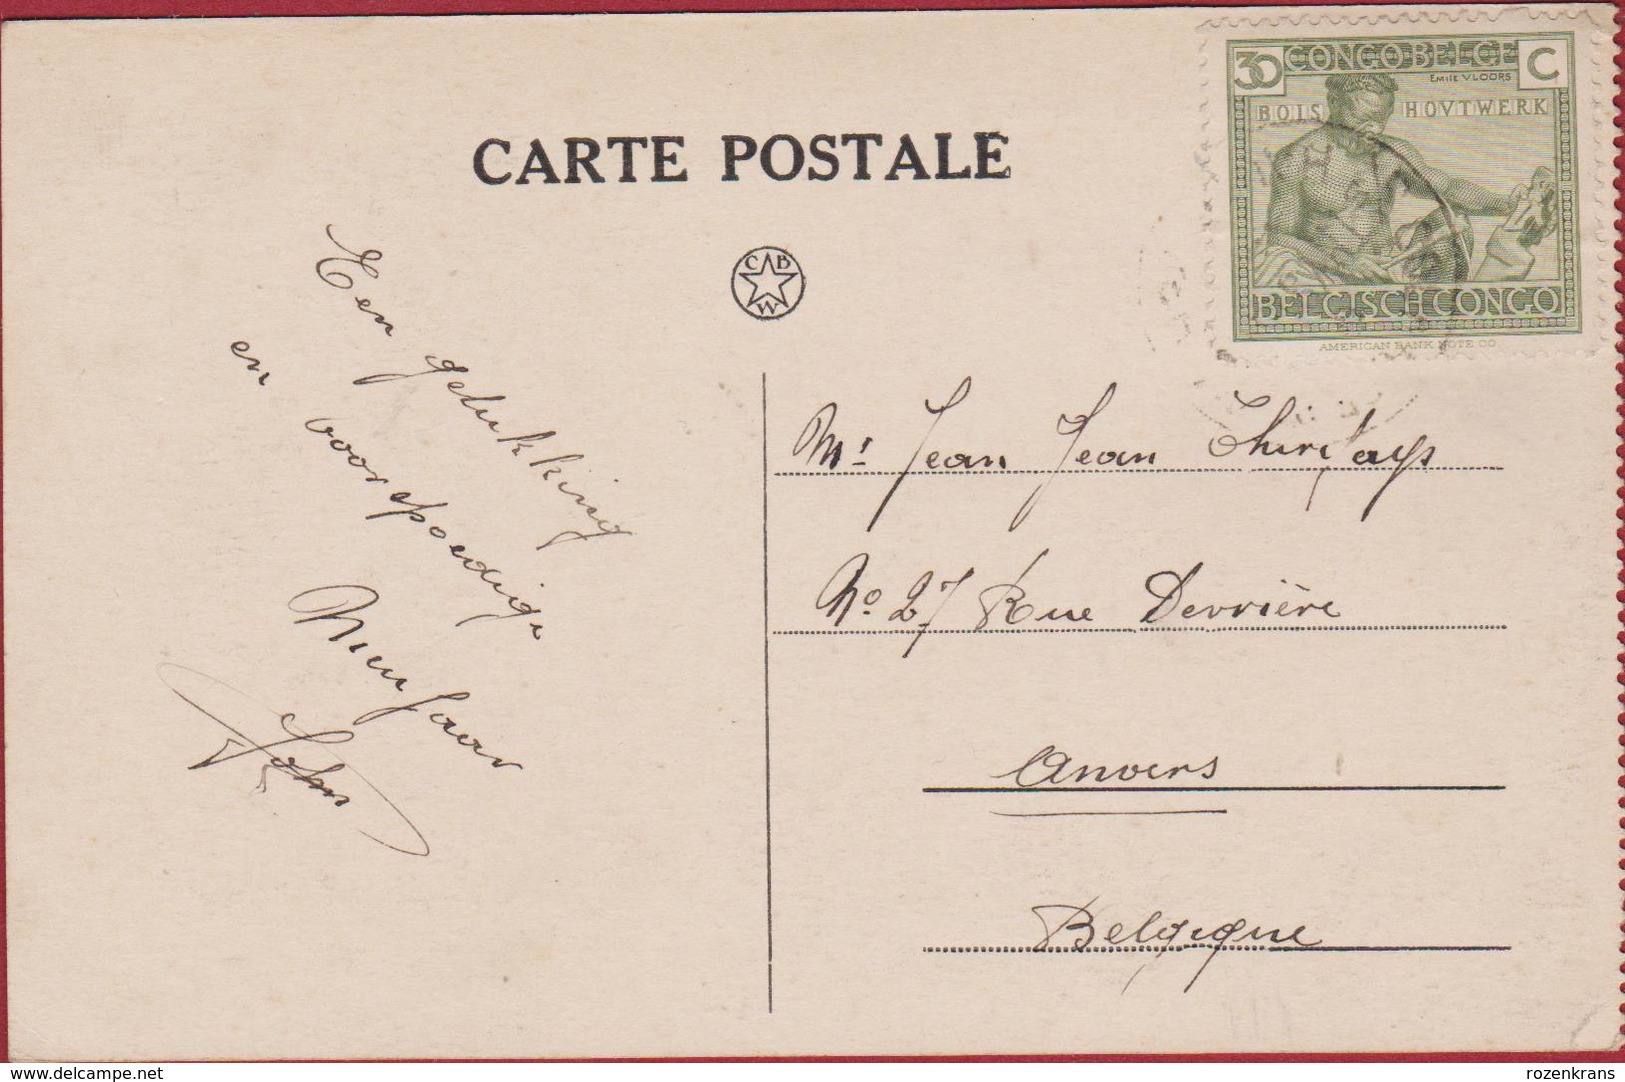 CARTE POSTALE
30 CONGO BELGE C
EMILE VLOORS
BOIS HOVTWERK
BELGISCH CONGO
AMERICAN BANK NOTE CO
C B
W
Een gelukkking
en voorspoedige
Nieuwjaar
John
Mr Jean Jean
No 27 Rue Derrière
Anvers
Belgique
www.delcampe.net
rozenkrans